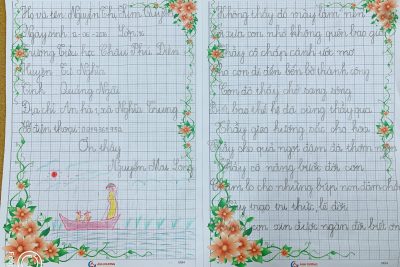 Họ và tên Nguyễn Thị Kim Quyên
Ngày sinh
Trường Tiểu học Châu Phú Điền
Huyện Tư Nghĩa
Tỉnh Quảng Ngãi
Địa chỉ An hà, xã Nghĩa Trung
Số điện thoại
Ơn thầy
Nguyễn Mai Long
Không thầy đố mày làm nên
xưa con nhỏ không quên bao giờ
Thầy cô chắp cánh ước mơ
Cho con đi đến bến bờ thành công
Con đò thầy chở sang sông
bao thế hệ đã cùng thầy qua
Thầy gieo hương sắc cho hoa
Thầy cho quả ngọt đậm đà thơm ngon
Thầy cõ nâng bước đời con
lo cho những búp non
trao tri thức lẽ đời
con xin